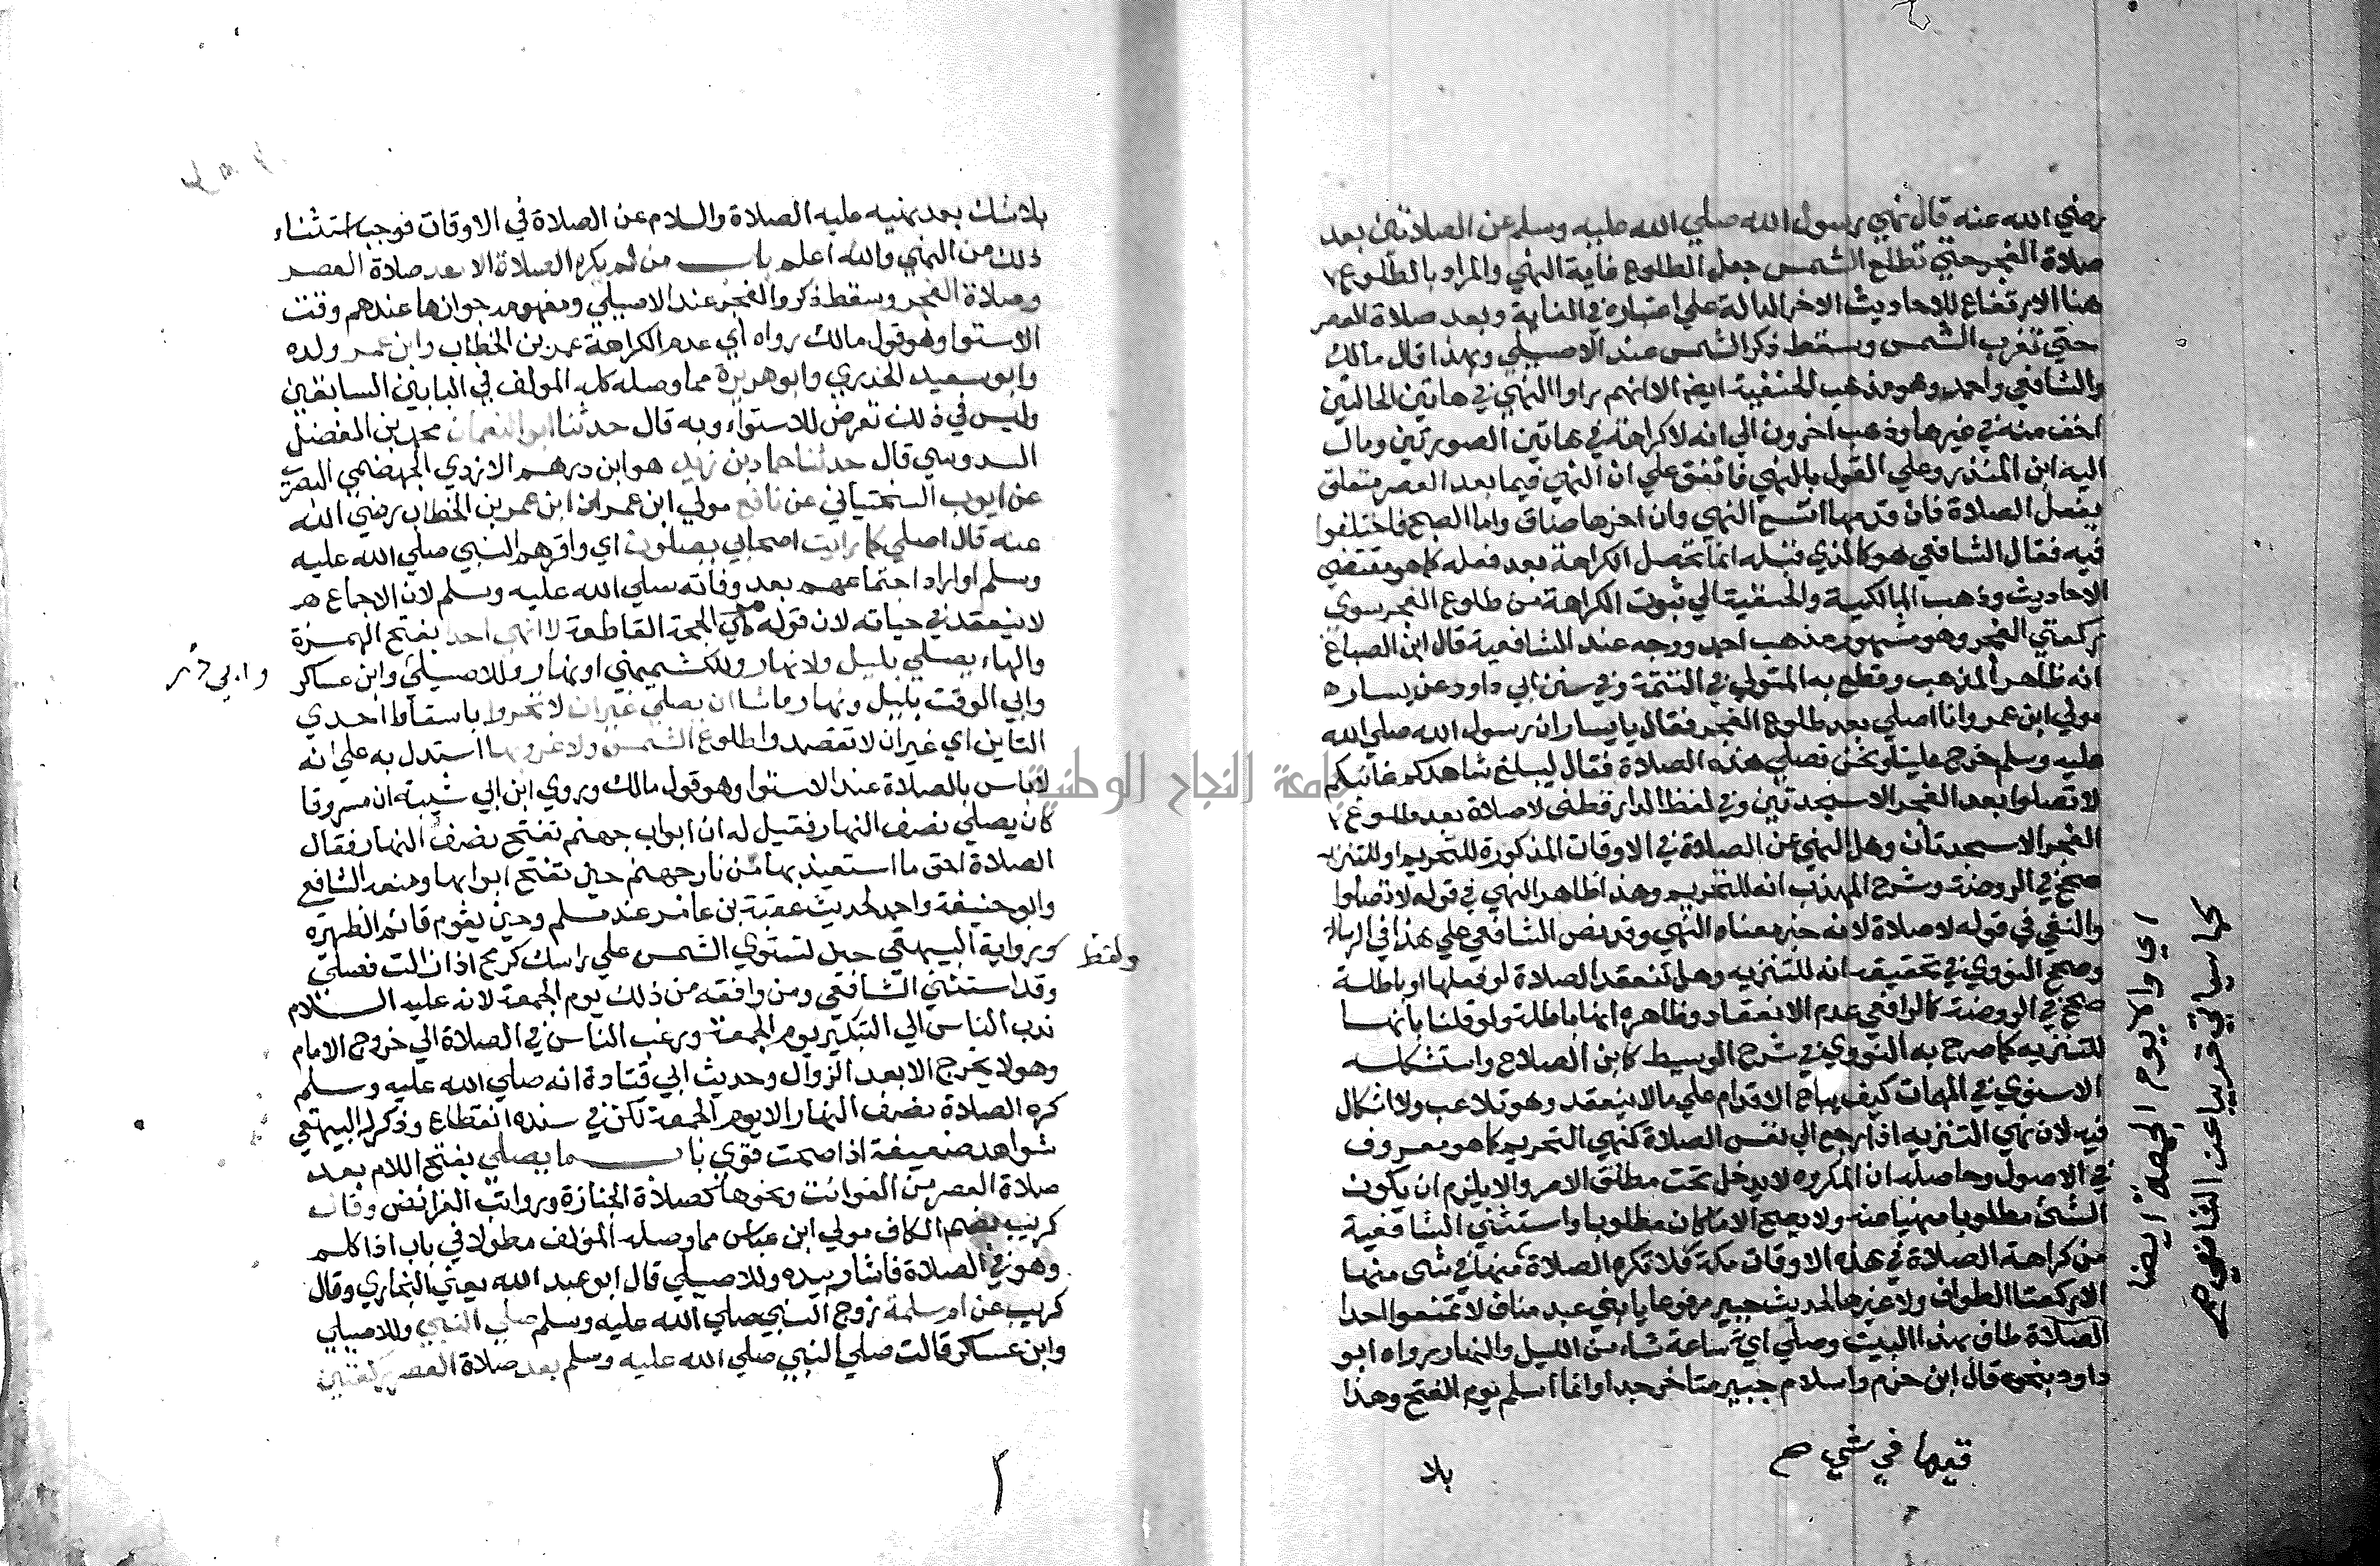 رضي الله عنه قال نهي رسول الله صلي الله عليه وسلم عن الصلاتين بعد
صلاة الفجر حتي تطلع الشمس جعل الطلوع غاية النهي والمراد بالطلوع
هنا الارتفاع للاحاديث الاخر الدالة علي اعتباره في الغاية وبعد صلاة العصر
حتي تغرب الشمس وسقط ذكر الشمس عند الاصيلي وبهذا قال مالك
والشافعي واحمد وهو مذهب الحنفية ايضا الا انهم راوا النهي في هاتين الحالتين
اخف منه في غيرها وذهب اخرون الي انه لا كراهة في هاتين الصورتين ومال
اليه ابن المنذر وعلي القول بالنهي فاتفق علي ان النهي فيما بعد العصر متعلق
بفعل الصلاة فان قدمها اتسع النهي وان اخرها ضاق واما الصبح فاختلفوا
فيه فقال الشافعي هو كالذي قبله انما تحصل الكراهة بعد فعله كما هو مقتضي
الاحاديث وذهب المالكية والحنفية الي ثبوت الكراهة من طلوع الفجر سوي
ركعتي الفجر وهو مشهور مذهب احمد ووجه عند الشافعية قال ابن الصباغ
انه ظاهر المذهب وقطع به المتولي في التتمة وفي سنن ابي داود عن يسار
مولي ابن عمر وانا اصلي بعد طلوع الفجر فقال يا يسار ان رسول الله صلي الله
عليه وسلم خرج علينا ونحن نصلي هذه الصلاة فقال ليبلغ شاهدكم غائبكم
لا تصلوا بعد الفجر الا سجدتين وفي لفظ الدارقطني لا صلاة بعد طلوع
الفجر الا سجدتان وهل النهي عن الصلاة في الاوقات المذكورة للتحريم او للتنزيه
صحح في الروضة وشرح المهذب انه للتحريم وهذا ظاهر النهي في قوله لا تصلوا
والنفي في قوله لا صلاة لانه خبر معناه النهي وقد نص الشافعي علي هذا في الرسالة
وصحح النووي في تحقيقه انه للتنزيه وهل تنعقد الصلاة لو فعلها او باطلة
صحح في الروضة كالرافعي عدم الانعقاد وظاهره انها باطلة ولو قلنا بانها
للتنزيه كما صرح به النووي في شرح الوسيط كابن الصلاح واستشكله
الاسنوي في المهمات كيف يباح الاقدام علي ما لا ينعقد وهو تلاعب ولا اشكال
فيه لان نهي التنزيه اذا رجع الي نفس الصلاة كنهي التحريم كما هو معروف
في الاصول وحاصله ان المكروه لا يدخل تحت مطلق الامر والا يلزم ان يكون
الشئ مطلوبا منهيا عنه ولا يصح الا ما كان مطلوبا واستثني الشافعية
من كراهة الصلاة في هذه الاوقات مكة فلا تكره الصلاة منها في شي منها
الا ركعتا الطواف ولا غيرها لحديث جبير مرفوعا يا بني عبد مناف لا تمنعوا احدا
الصلاة طاف بهذا البيت وصلي اي ساعة شاء من الليل والنهار رواه ابو
داود بنحوه قال ابن حزم واسلام جبير متاخر جدا وانما اسلم يوم الفتح وهذا
فيها في شي صح
بلا
اي ولا يوم الجمعة ايضا
كما سياتي قريبا عن الشافعي صح
بلا شك بعد نهيه عليه الصلاة والسلام عن الصلاة في الاوقات فوجب استثناء
ذلك من النهي والله اعلم باب من لم يكره الصلاة الا بعد صلاة العصر
وصلاة الفجر وسقط ذكر والفجر عند الاصيلي ومفهومه جوازها عندهم وقت
الاستوا وهو قول مالك رواه اي عدم الكراهة عمر بن الخطاب وابن عمر ولده
وابو سعيد الخدري وابو هريرة مما وصله كله المولف في البابين السابقين
وليس في ذلك تعرض للاستواء وبه قال حدثنا ابو النعمان محمد بن الفضل
السدوسي قال حدثنا حماد بن زيد هو ابن درهم الازدي الجهضمي البصري
عن ايوب السختياني عن نافع مولي ابن عمر ان ابن عمر بن الخطاب رضي الله
عنه قال اصلي كما رايت اصحابي يصلون اي واقرهم النبي صلي الله عليه
وسلم او اراد اجتماعهم بعد وفاته صلي الله عليه وسلم لان الاجماع
لا ينعقد في حياته لان قوله هي الحجة القاطعة لا انهي احدا بفتح الهمزة
والهاء يصلي بليل ولا نهار وللكشميهني او نهار وللاصيلي وابن عساكر
وابي ذر
وابي الوقت بليل ونهار ما شا ان يصلي غير ان لا تحروا باسقاط احدي
التاين اي غير ان لا تقصدوا طلوع الشمس ولا غروبها استدل به علي انه
لا باس بالصلاة عند الاستوا وهو قول مالك وروي ابن ابي شيبة ان مسروقا
كان يصلي نصف النهار فقيل له ان ابواب جهنم تفتح نصف النهار فقال
الصلاة احق ما استعيذ بها من نار جهنم حين تفتح ابوابها ومنعه الشافعي
وابو حنيفة واحمد لحديث عقبة بن عامر عند مسلم وحين يقوم قائم الظهيرة
ولفظ
رواية البيهقي حين تستوي الشمس علي راسك كرمح اذا زالت فصلي
وقد استثني الشافعي ومن وافقه من ذلك يوم الجمعة لانه عليه السلام
ندب الناس الي التبكير يوم الجمعة ورغب الناس في الصلاة الي خروج الامام
وهو لا يخرج الا بعد الزوال وحديث ابي قتادة انه صلي الله عليه وسلم
كره الصلاة نصف النهار الا يوم الجمعة لكن في سنده انقطاع وذكر له البيهقي
شواهد ضعيفة اذا ضمت قوي باب ما يصلي بفتح اللام بعد
صلاة العصر من الفوائت ونحوها كصلاة الجنازة ورواتب الفرائض وقال
كريب بضم الكاف مولي ابن عباس مما وصله المؤلف مطولا في باب اذا كلم
وهو في الصلاة فاشار بيده وللاصيلي قال ابو عبد الله يعني البخاري وقال
كريب عن ام سلمة زوج النبي صلي الله عليه وسلم صلي النبي وللاصيلي
وابن عساكر قالت صلي النبي صلي الله عليه وسلم بعد صلاة العصر ركعتين
جامعة النجاح الوطنية